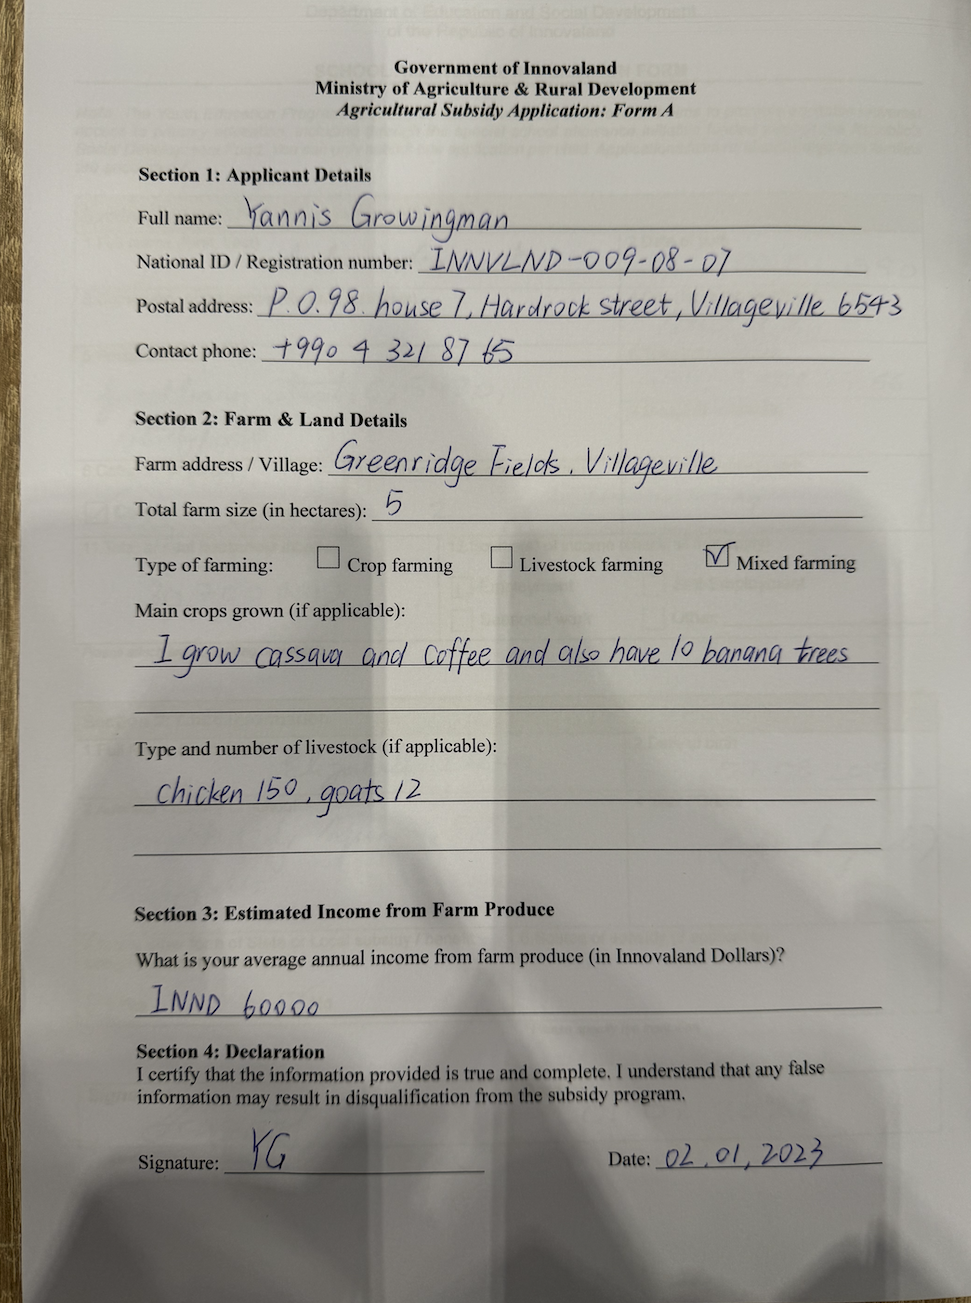 Government of Innovaland
Ministry of Agriculture & Rural Development
Agricultural Subsidy Application: Form A
Section 1: Applicant Details
Full name: Yannis Growingman
National ID / Registration number: INNVLND-009-08-07
Postal address: P.O.98. house 7, Hardrock street, Villageville 6543
Contact phone: +990 4 321 87 65
Section 2: Farm & Land Details
Farm address / Village: Greenridge Fields, Villageville
Total farm size (in hectares): 5
Type of farming: ☐ Crop farming ☐ Livestock farming ☑ Mixed farming
Main crops grown (if applicable):
I grow cassava and coffee and also have 10 banana trees
Type and number of livestock (if applicable):
chicken 150, goats 12
Section 3: Estimated Income from Farm Produce
What is your average annual income from farm produce (in Innovaland Dollars)?
INND 60000
Section 4: Declaration
I certify that the information provided is true and complete. I understand that any false
information may result in disqualification from the subsidy program.
Signature: YG Date: 02.01,2023